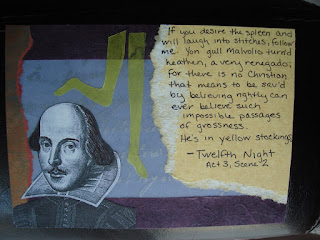 If you desire the spleen and
will laugh into stitches, follow
me. Yon gull Malvolio turn'd
heathen, a very renegado;
For there is no Christian
that means to be sav'd
by believing rightly can
ever believe such
impossible passages
of grossness.
He's in yellow stockings
- Twelfth Night
Act 3, Scene 2